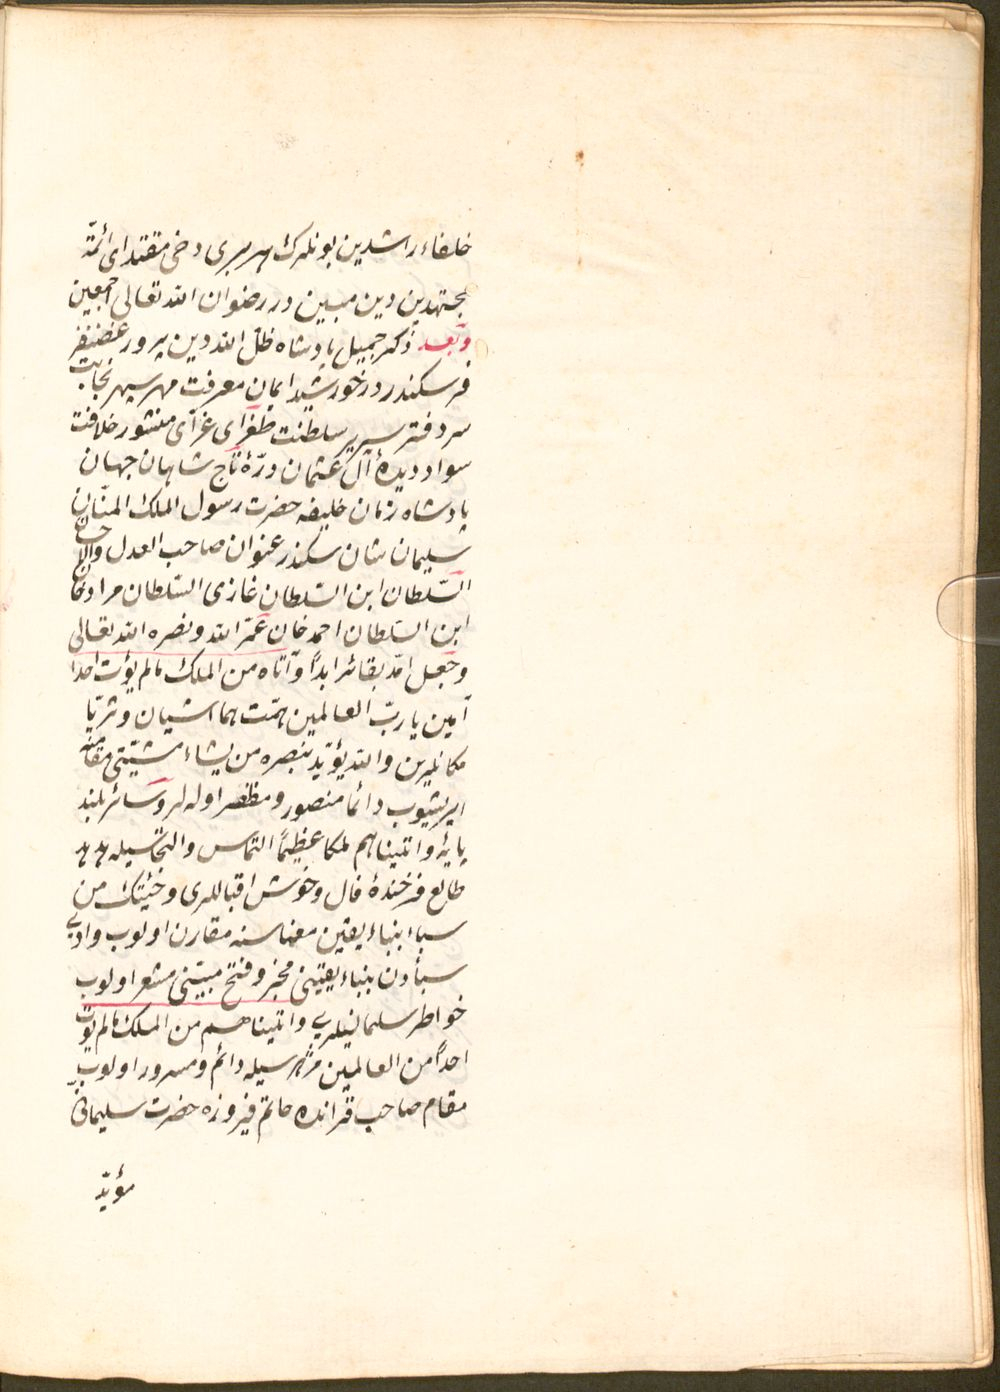 خلفاء راشدین بونلرك هر بری دخی مقتدای ائمّهٔ
مجتهدین دین مبین در رضوان الله تعالی اجمعین
وبعد ذكر جمیل پادشاه ظلّ الله دین پرور غضنفر
فر سكندر در خورشید ایمان معرفت مهر سپهر نجابت
سر دفتر سریر سلطنت طغرای غرّای منشور خلافت
سواد دیدهٔ آل عثمان درّهٔ تاج شاهان جهان
پادشاه زمان خلیفه حضرت رسول الملك المنّان
سلیمان شان سكندر عنوان صاحب العدل والاحسان
السّلطان ابن السّلطان غازی السّلطان مراد خان
ابن السّلطان احمد خان عمّر الله ونصره الله تعالی
وجعل امدّ بقائه ابداً وآتاه من الملك مالم یؤت احدا
آمین یا ربّ العالمین همّت هما اشیان وثریّا
مكانلرین والله یؤیّد بنصره من یشاء مشیّتی مقامنه
ایریشوب دائما منصور ومظفر اوله لر وسائر بلند
پایهٔ واتیناهم ملكا عظیماً التماس والتجاسیله
طالع فرخندهٔ فال وخوش اقباللری وجئتك من
سباء بنباء یقین معناسنه مقارن اولوب وادی
سبأدن بنباء یقینی مخبر وفتح مبینی مشعر اولوب
خواطر سلیمانیلری واتیناهم من الملك مالم یؤت
احداً من العالمین مژده سیله دائم ومسرور اولوب
مقام صاحب قرانده خاتم فیروزه حضرت سلیمانی
مؤیّد